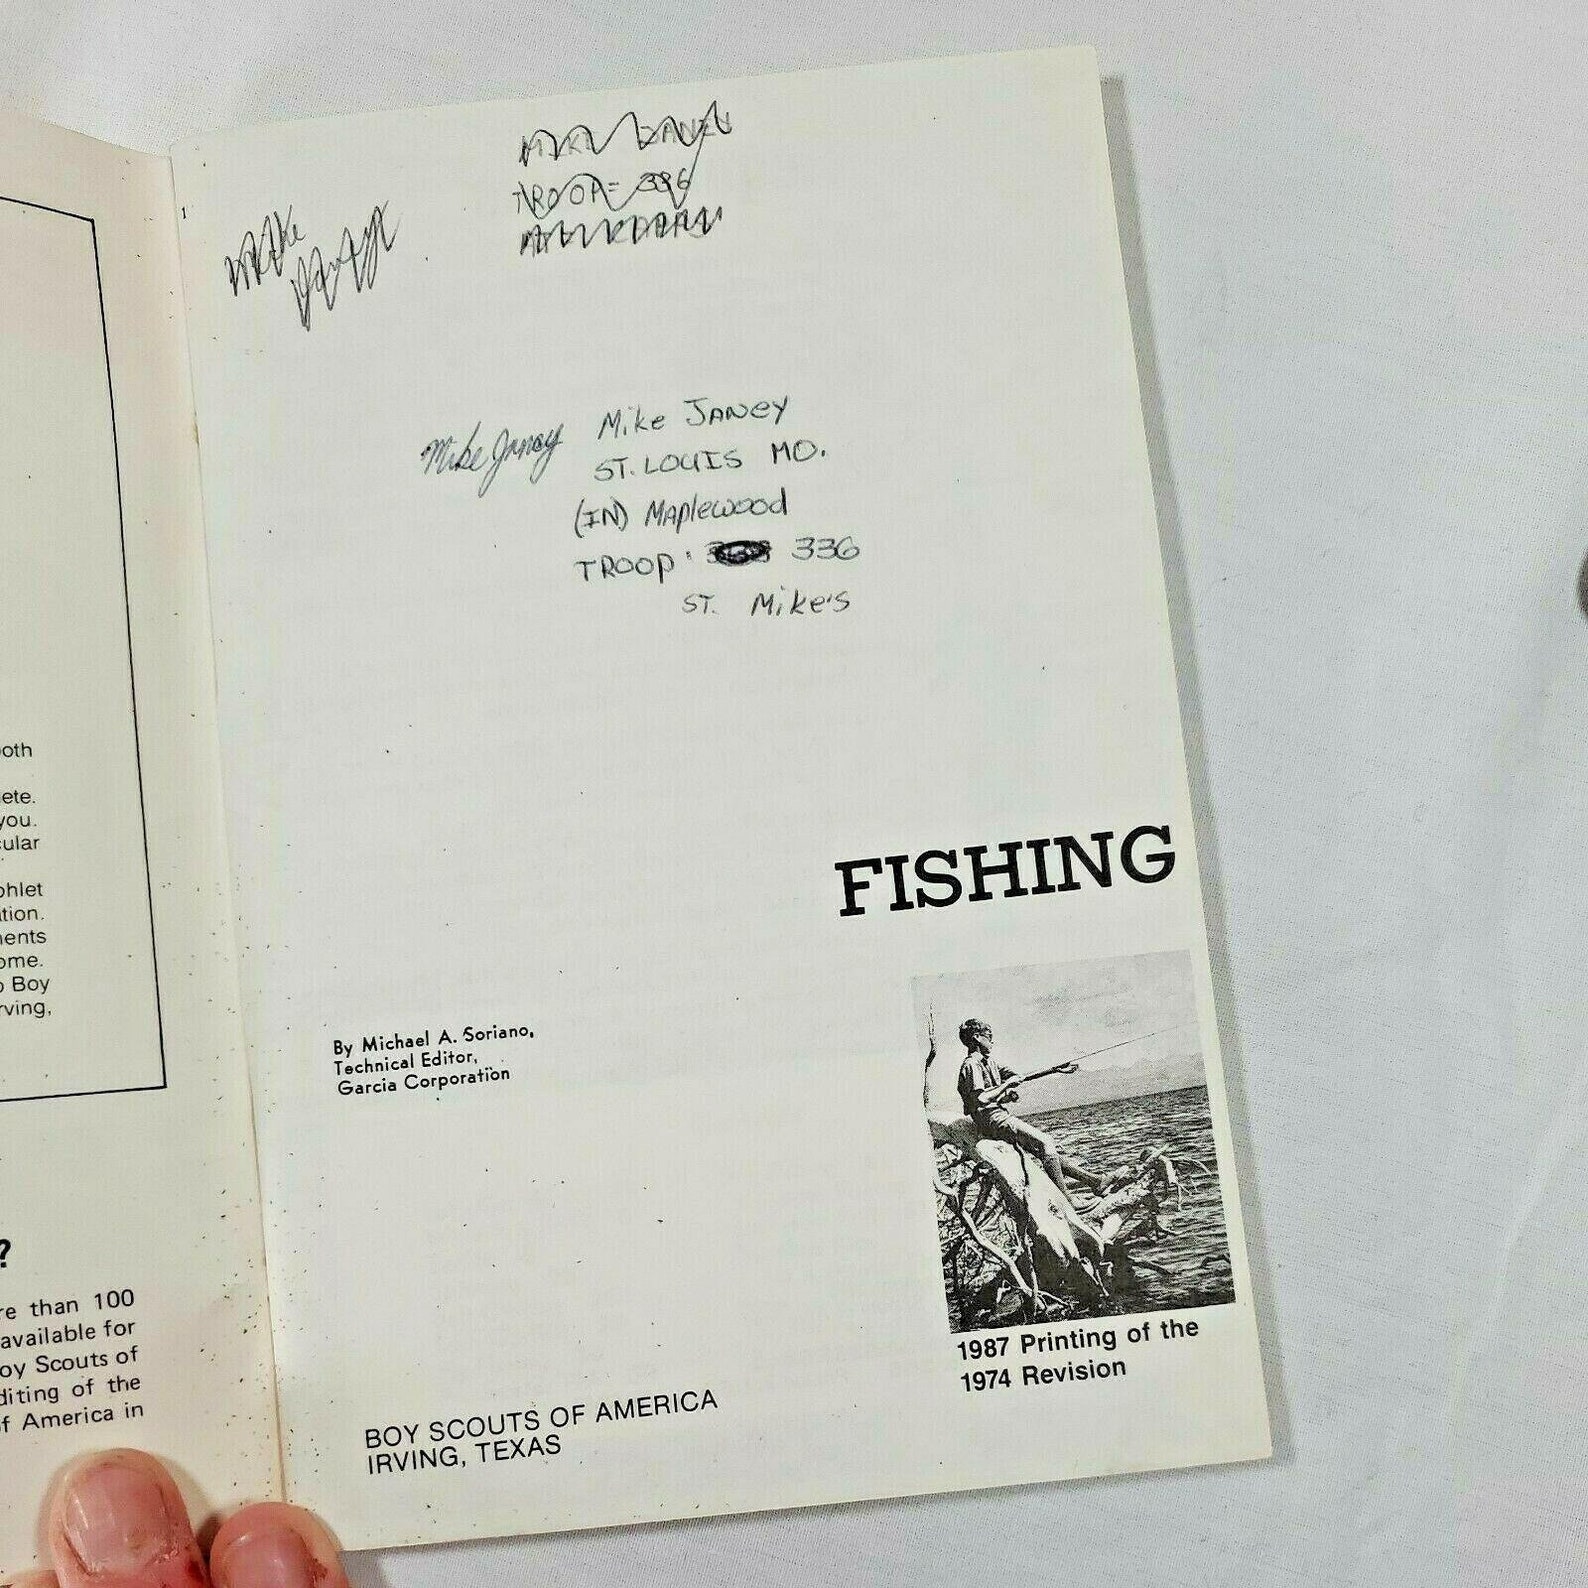 ooth
ete.
you.
cular
phlet
ation.
ments
ome.
o Boy
rving,
?
re than 100
available for
oy Scouts of
diting of the
of America in
1
MIKE JANEY
TROOP= 336
Mike
Mike Janey
Mike JANEY
ST. LOUIS MO.
(IN) MAplewood
TROOP: 336
ST. Mike's
FISHING
By Michael A. Soriano,
Technical Editor,
Garcia Corporation
1987 Printing of the
1974 Revision
BOY SCOUTS OF AMERICA
IRVING, TEXAS